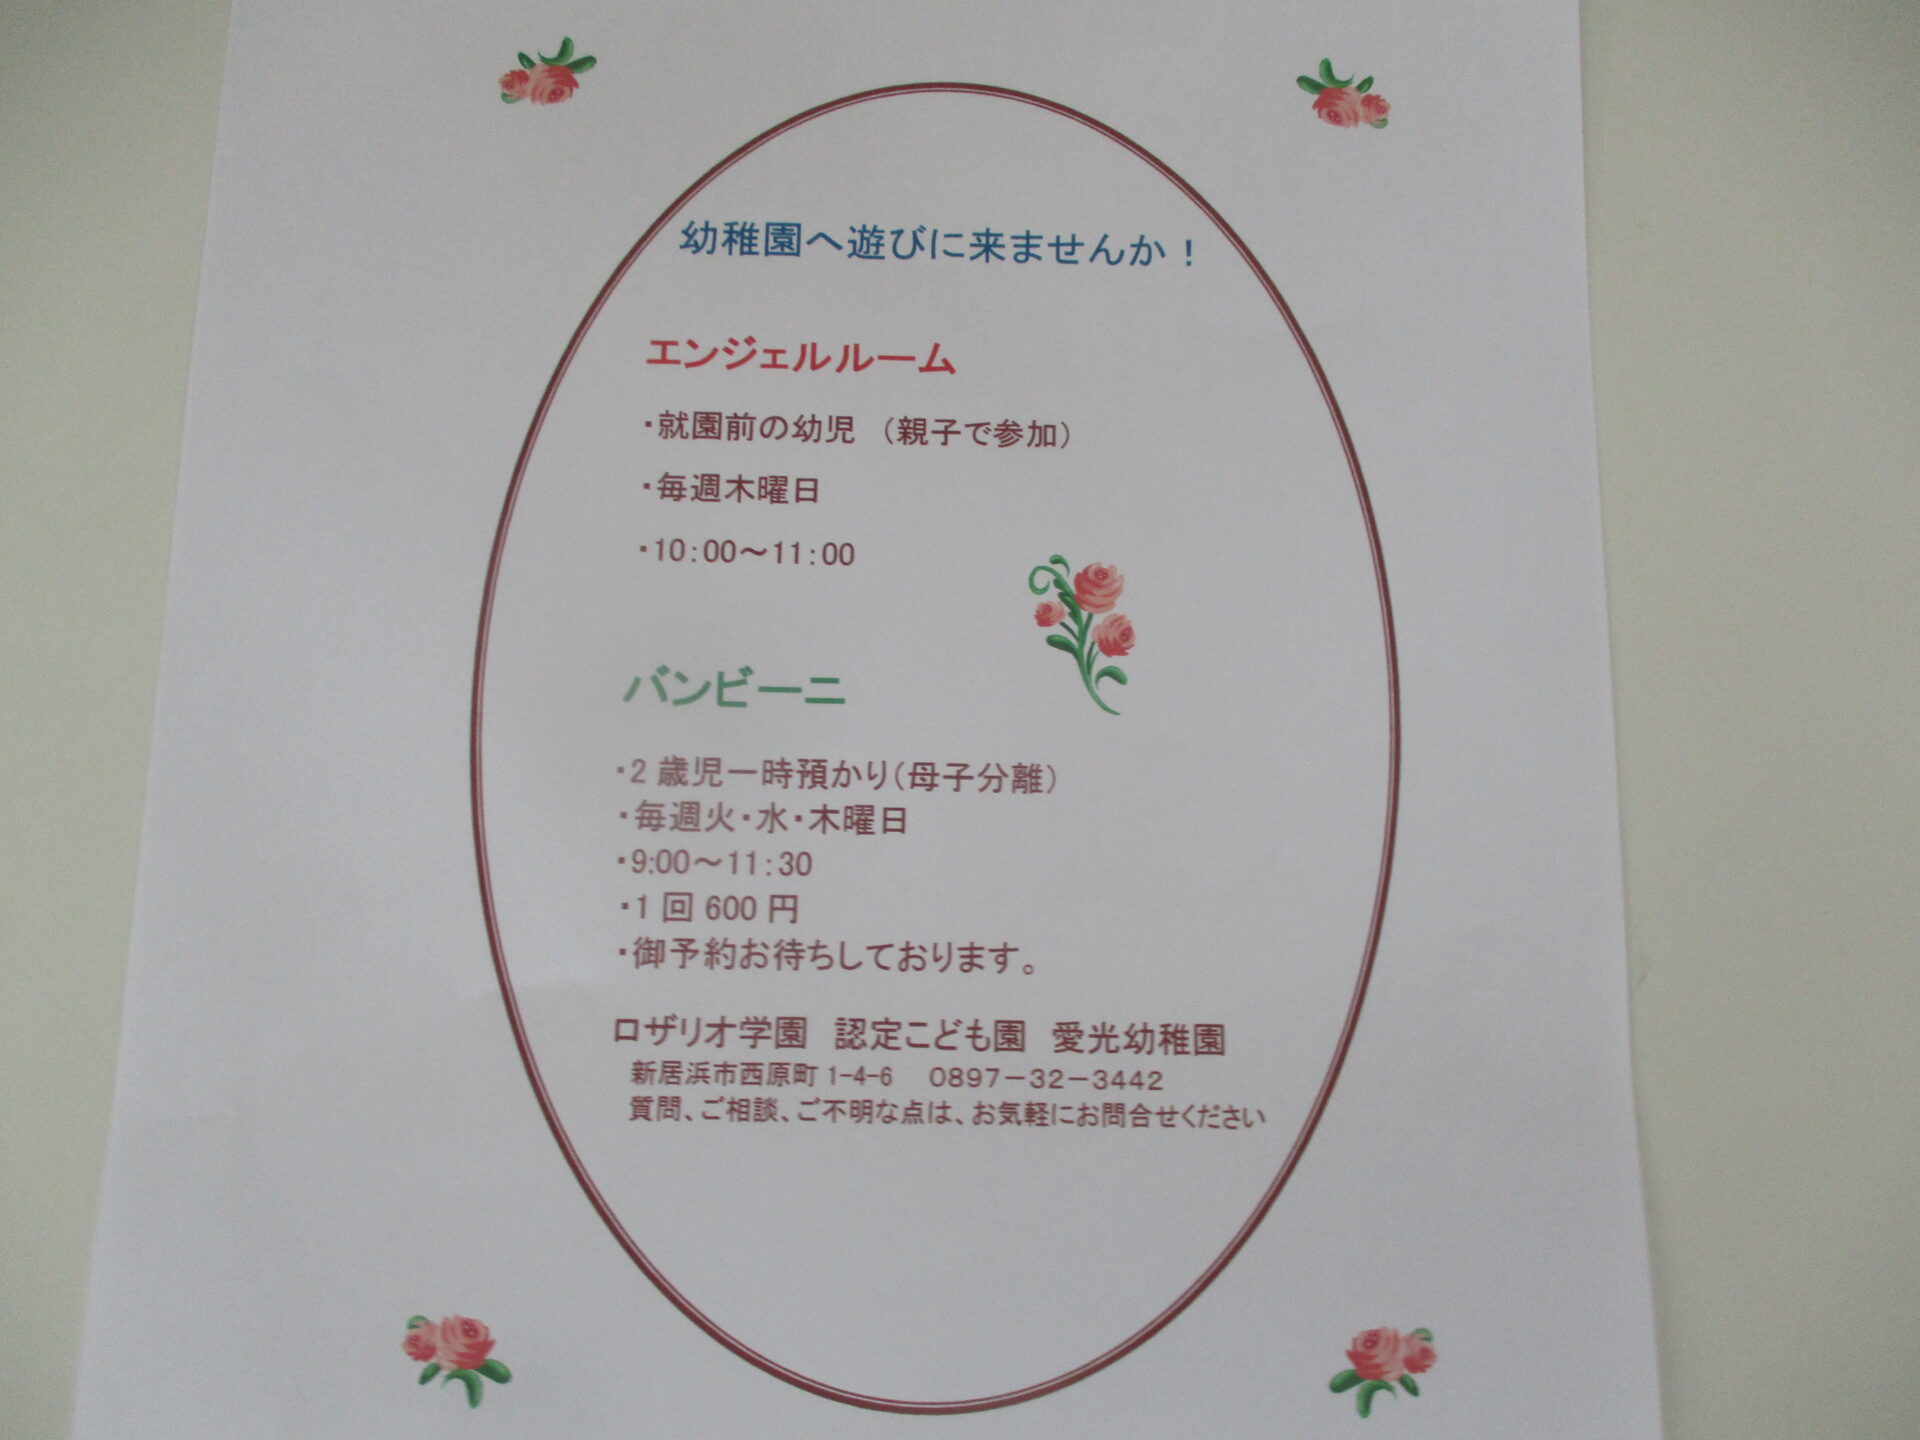 幼稚園へ遊びに来ませんか！
エンジェルルーム
・就園前の幼児 （親子で参加）
・毎週木曜日
・10：00～11：00
バンビーニ
・2 歳児一時預かり（母子分離）
・毎週火・水・木曜日
・9:00～11：30
・1 回 600 円
・御予約お待ちしております。
ロザリオ学園 認定こども園 愛光幼稚園
新居浜市西原町 1-4-6 0897－32－3442
質問、ご相談、ご不明な点は、お気軽にお問合せください